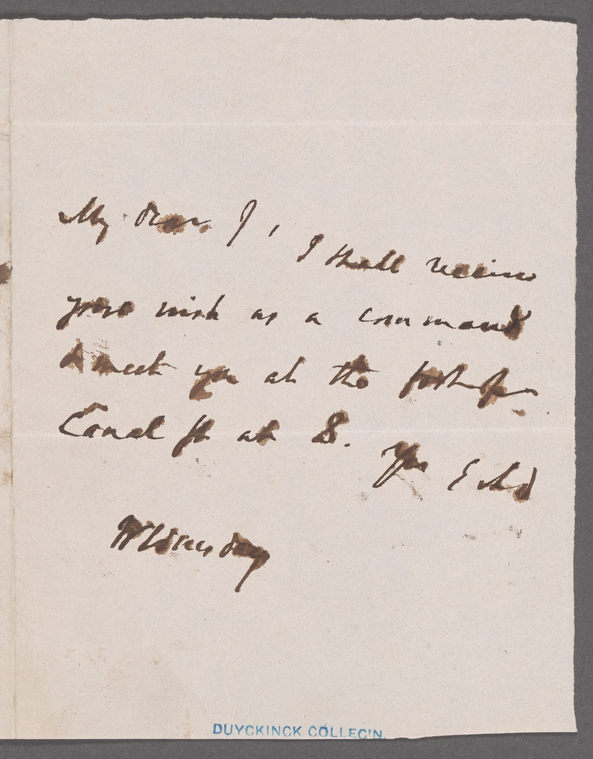 My dear J,
I shall receive
your wish as a command
& meet you at the foot of
Canal St at 8.
Yrs E A D
Wednesday
DUYCKINCK COLLEC'N.